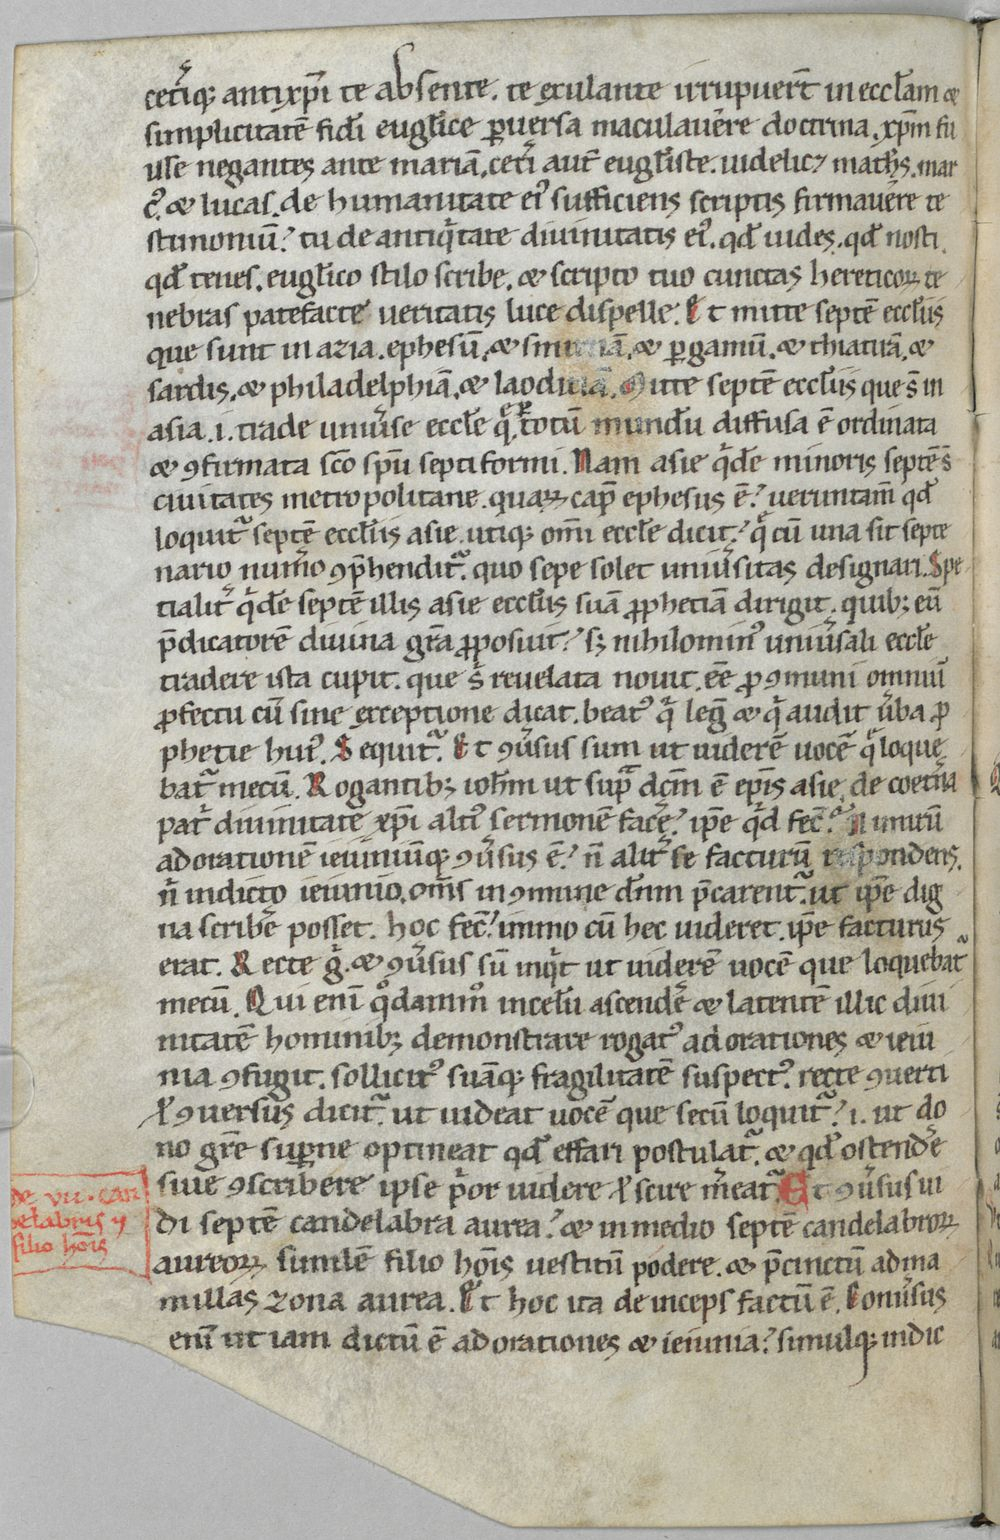 ceteriq; antixp̄i te absente. te exulante irrupuer̄t in eccl̄am &
simplicitatē fidei eugl̄ice ꝑuersa maculauere doctrina. xp̄m fu
isse negantes ante mariā. ceteri aut̄ eugl̄iste. uidelicꝫ math̄s. mar
cꝰ. & lucas. de humanitate eiꝰ sufficiens scriptis firmauere te
stimoniū? tu de antiqͥtate diuinitatis eiꝰ. qd̄ uides. qd̄ nosti.
qd̄ tenes. eugl̄ico stilo scribe. & scripto tuo cunctas hereticoꝝ te
nebras patefacte ueritatis luce dispelle. Et mitte septē eccl̄iis
que sunt in azia. ephesū. & smirnā. & ꝑgamū. & thiatirā. &
sardis. & philadelphiā. & laodiciā. Mitte septē eccl̄iis que s̄ in
asia .i. trade uniuerse eccl̄e q̄ ꝑ totū mundū diffusa ē ordinata
& ꝯfirmata sc̄o sp̄u septiformi. Nam asie qͥdē minoris septē s̄
ciuitates metropolitane. quaꝝ cap̄ ephesus ē? ueruntam̄ qd̄
loquitᷣ septē eccl̄iis asie. utiq; om̄i eccl̄e dicit? q̄ cū una sit septe
nario num̄o ꝯp̄henditᷣ. quo sepe solet uniuersitas designari. Spe
tialit̄ qͥdē septē illis asie eccl̄iis suā ꝓphetiā dirigit. quibꝫ eū
p̄dicatorē diuina gr̄a ꝓposuit? sꝫ nihilominꝰ uniuersali eccl̄e
tradere ista cupit. que s̄ reuelata nouit. eē ꝓ ꝯmuni omniū
ꝓfectu cū sine exceptione dicat. beatꝰ qͥ leḡ & qͥ audit uerba ꝓ
phetie huiꝰ. Sequitᷣ. Et ꝯuersus sum ut uiderē uocē q̄ loque
batᷣ mecū. Rogantibꝫ ioh̄m ut supᷓ dc̄m ē ep̄is asie. de coet̄na
patͥ diuinitate xp̄i altiꝰ sermonē facē? ip̄e qͥd fec̄? Nimirū
adorationē ieiuniūq; ꝯuersus ē? n̄ alit̄ se facturū respondens.
nͥ indicto ieiunio. om̄s in ꝯmune dn̄m p̄carentᷣ. ut ip̄e dig
na scribe posset. hoc fec̄? immo cū hec uideret. ip̄e facturus
erat. Recte gͥ. & ꝯuersus sū inqͥt ut uiderē uocē que loquebatᷣ
mecū. Qui eni̅ qͦdammͦ in celū ascendē & latentē illic diui
nitatē hominibꝫ demonstrare rogatꝰ ad orationes & ieiu
nia ꝯfugit. sollicitꝰ suāq; fragilitatē suspectꝰ. recte ꝯuerti
ł ꝯuersus dicitᷣ. ut uideat uocē que secū loquitᷣ? .i. ut do
no gr̄e suꝑne optineat qd̄ effari postulatᷣ. & qd̄ ostendē
siue ꝯscribere ipse pͥor uidere ł scire mereatᷣ. Et ꝯuersus ui
di septē candelabra aurea? & in medio septē candelabroꝝ
aureoꝝ similē filio hōis uestitū podere. & p̄cinctū ad ma
millas zona aurea. Et hoc ita deinceps factū ē. Conuersus
eni̅ ut iam dictū ē ad orationes & ieiunia? simulq; indic
de vii. can
delabris ⁊
filio hōis